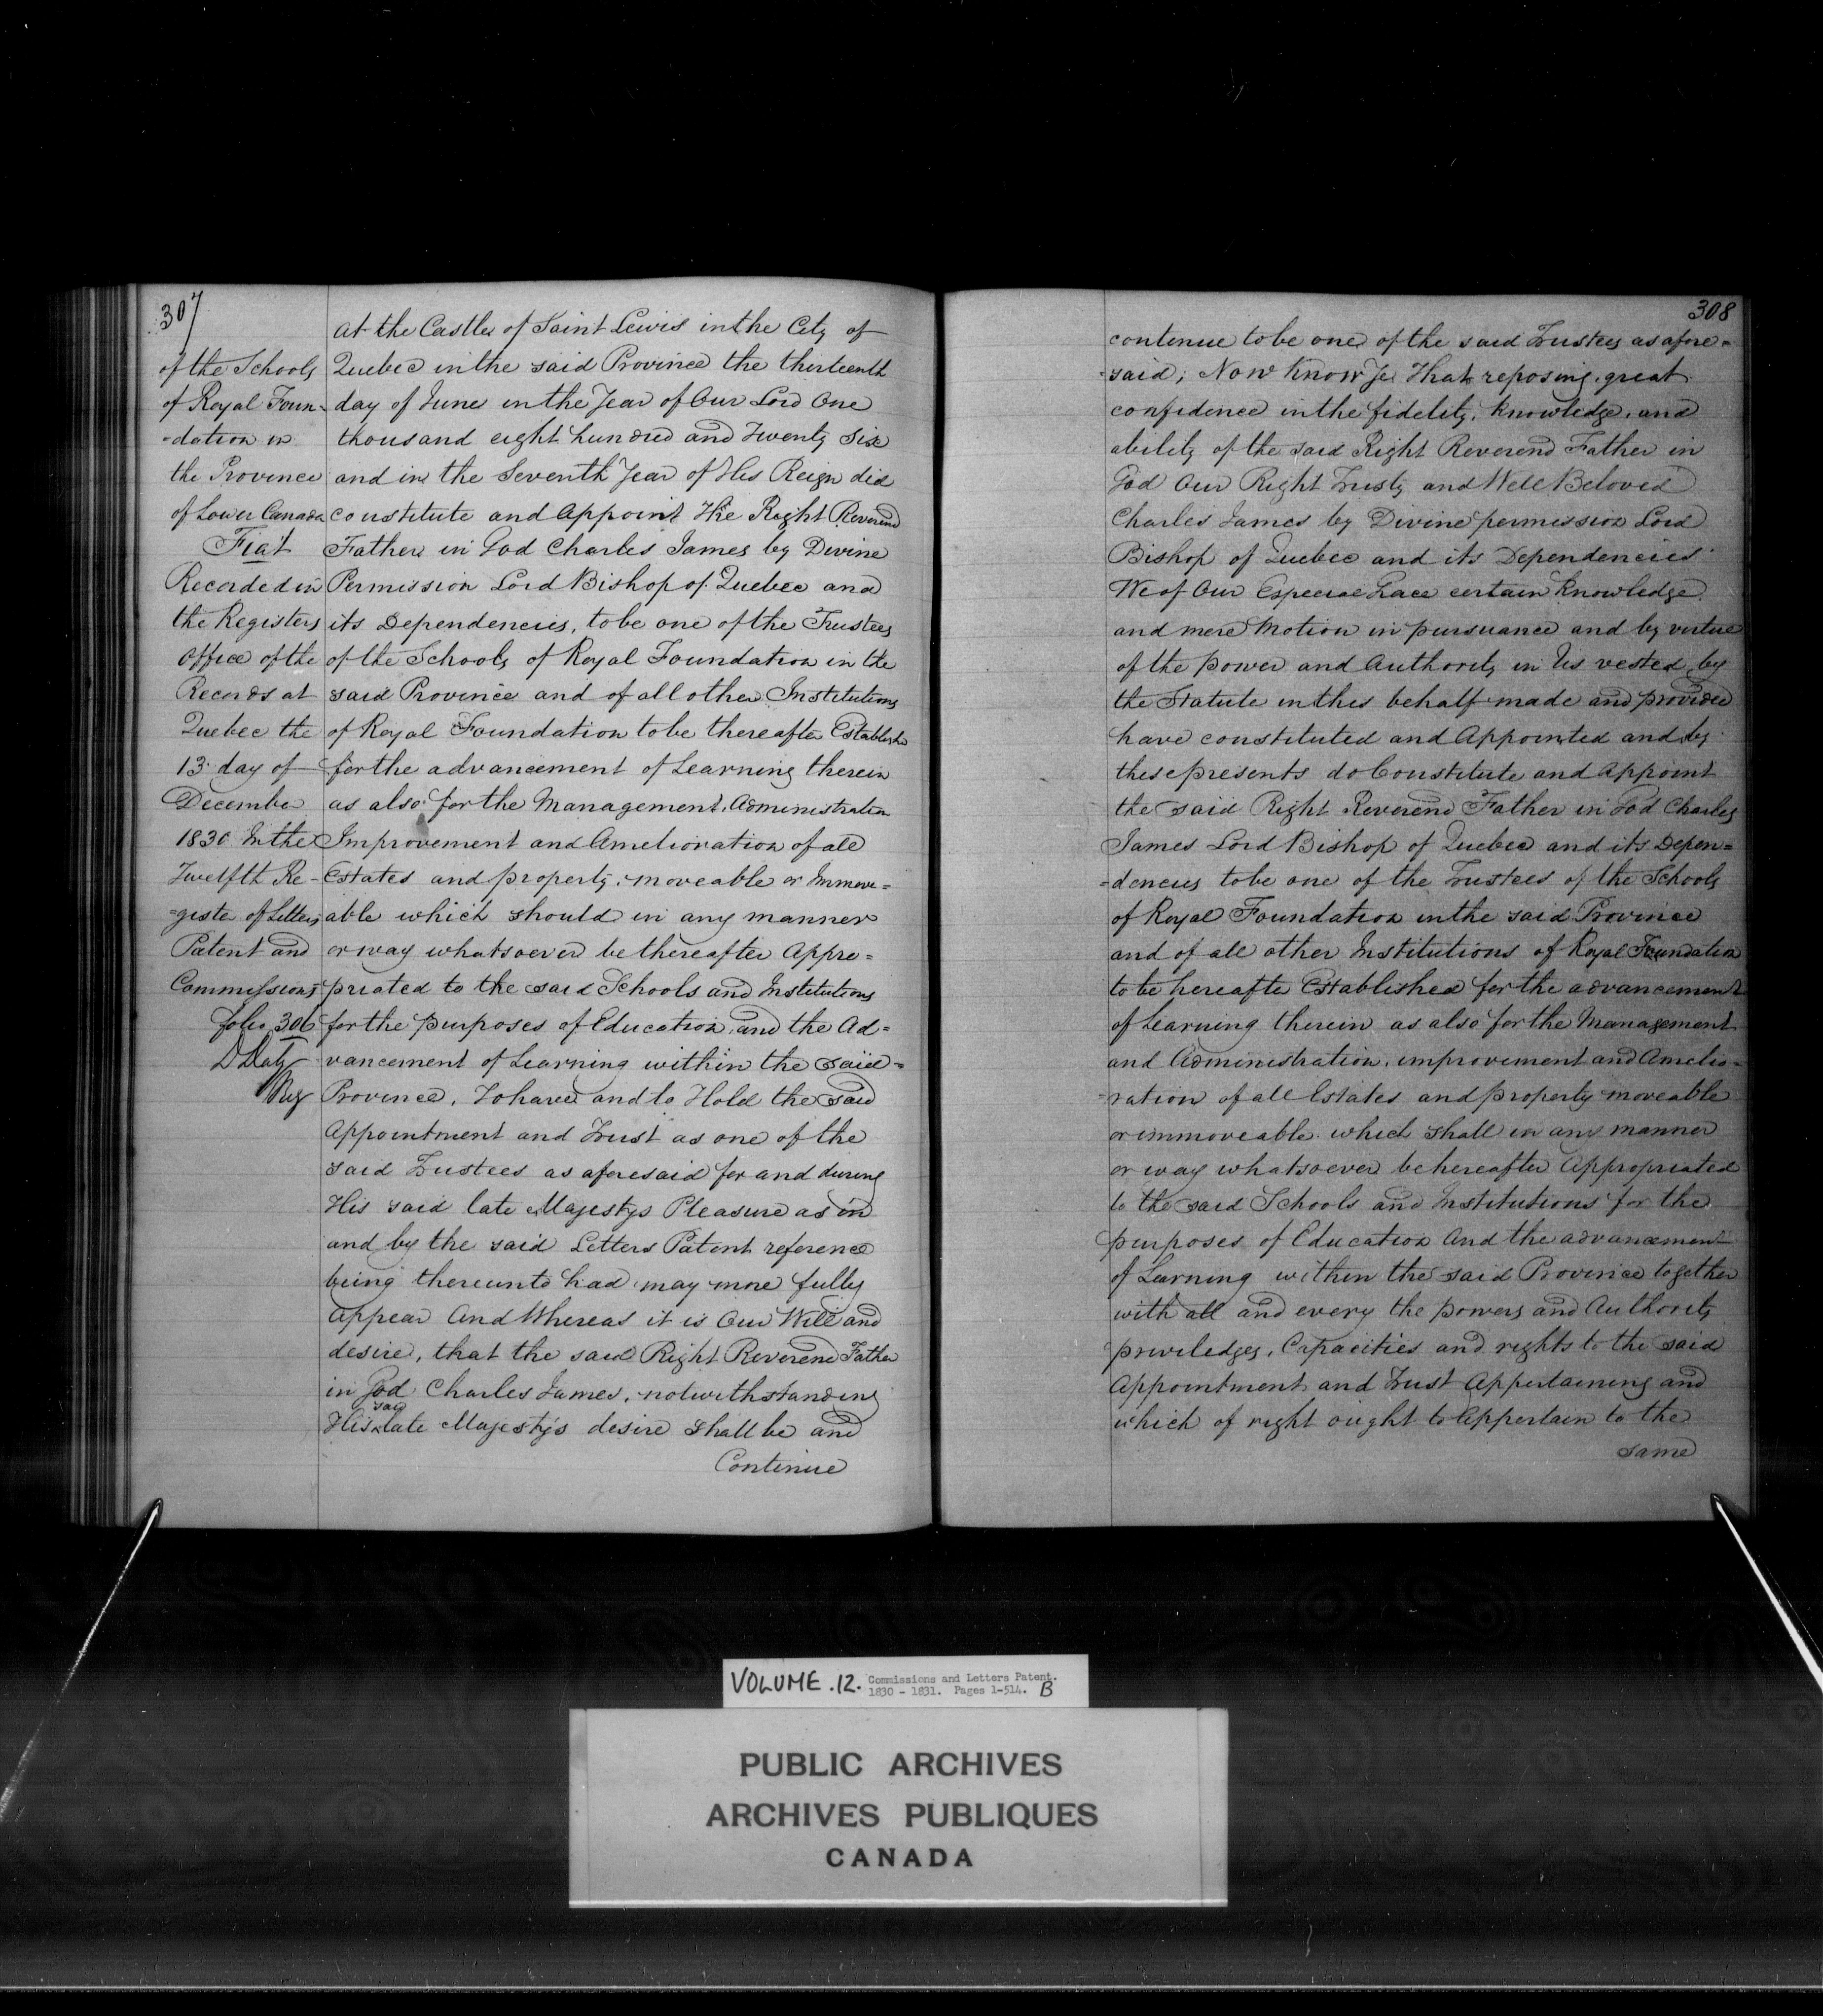 307
of the Schools
of Royal Foun-
-dation in
the Province
of Lower Canada
Fiat
Recorded in
the Registers
Office of the
Records at
Quebec the
13 day of
December
1830 In the
Twelfth Re-
=gister of Letters
Patent and
Commissions
folio 306
D Daly
Reg
at the Castle of Saint Lewis in the City of
Quebec in the said Province the thirteenth
day of June in the Year of Our Lord One
thousand eight hundred and Twenty Six
and in the Seventh Year of His Reign did
constitute and Appoint The Right Reverend
Father in God Charles James by Divine
Permission Lord Bishop of Quebec and
its Dependencies, to be one of the Trustees
of the Schools of Royal Foundation in the
said Province and of all other Institutions
of Royal Foundation to be thereafter Establishd
for the advancement of Learning therein
as also for the Management, Administration
Improvement and Amelioration of all
Estates and property, moveable or Immove=
able which should in any manner
or way whatsoever be thereafter Appro=
priated to the said Schools and Institutions
for the purposes of Education, and the Ad=
vancement of Learning within the said=
Province, To have and to Hold the said
Appointment and Trust as one of the
said Trustees as aforesaid for and during
His said late Majestys Pleasure as in
and by the said Letters Patent reference
being thereunto had may more fully
appear And Whereas it is Our Will and
desire, that the said Right Reverend Father
in God Charles James, notwithstanding
said
His late Majesty's desire shall be and
Continue
308
continue to be one of the said Trustees as afore=
=said; Now Know Ye That reposing great
confidence in the fidelity, knowledge, and
ability of the said Right Reverend Father in
God Our Right Trusty and Well Beloved
Charles James by Divine permission Lord
Bishop of Quebec and its Dependencies
We of Our Especial Grace certain Knowledge
and mere Motion in pursuance and by virtue
of the power and Authority in Us vested by
the Statute in this behalf made and provided
have constituted and Appointed and by
these presents do Constitute and Appoint
the said Right Reverend Father in God Charles
James Lord Bishop of Quebec and its Depen=
=dencies to be one of the Trustees of the Schools
of Royal Foundation in the said Province
and of all other Institutions of Royal Foundation
to be hereafter Established for the advancement
of Learning therein as also for the Management
and Administration, improvement and Amelio=
=ration of all Estates and property moveable
or immoveable which shall in any manner
or way whatsoever be hereafter Appropriated
to the said Schools and Institutions for the
purposes of Education and the advancement
of Learning within the said Province together
with all and every the powers and Authority
priviledges, Capacities and rights to the said
Appointment and Trust Appertaining and
which of right ought to Appertain to the
same
VOLUME .12. Commissions and Letters Patent.
1830 - 1831. Pages 1-514. B
PUBLIC ARCHIVES
ARCHIVES PUBLIQUES
CANADA